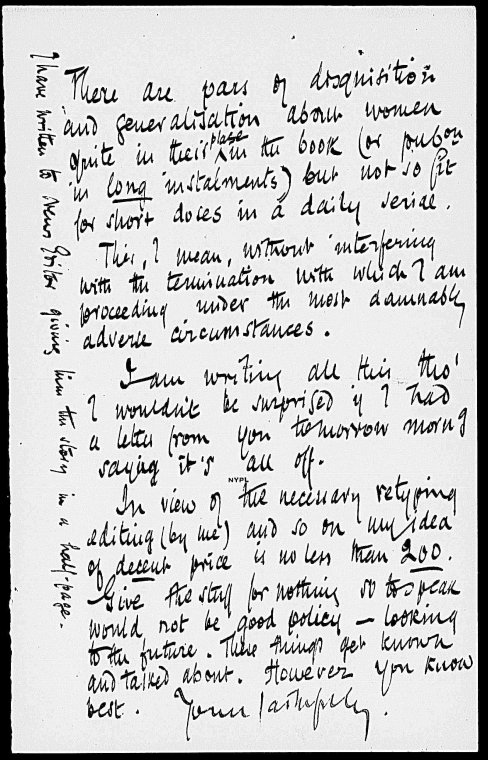 There are pars of disquisition
and generalisation about women
quite in their place in the book (or pubon
in long instalments) but not so fit
for short doses in a daily serial.
This, I mean, without interfering
with the termination with which I am
proceeding under the most damnably
adverse circumstances.
I am writing all this tho'
I wouldn't be surprised if I had
a letter from you tomorrow morng
saying it's all off.
NYPL
In view of the necessary retyping
editing (by me) and so on my idea
of decent price is no less than 200.
Give the stuff for nothing so to speak
would not be good policy — looking
to the future. These things get known
and talked about. However you know
best. Yours faithfully.
I have written to News Editor giving him the story in a half-page.